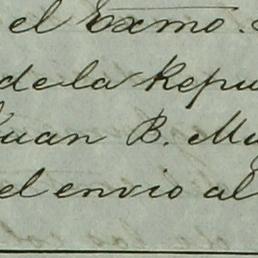 el Exmo.
de la Repu
uan B. Mu
el envio al